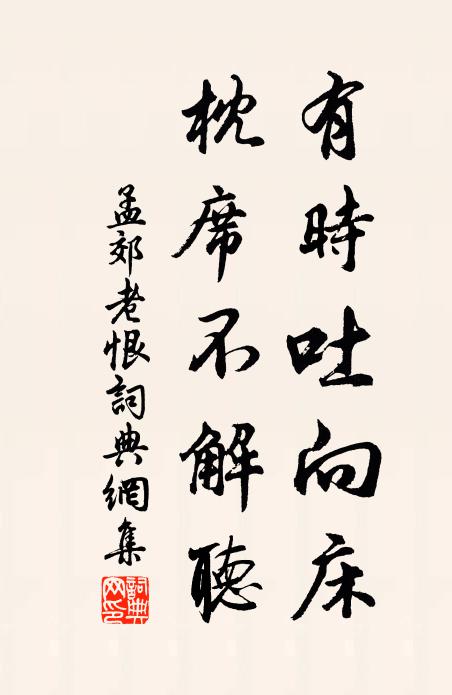 有時吐向床
枕席不解聽
孟郊老恨詞典網集
詞典網印